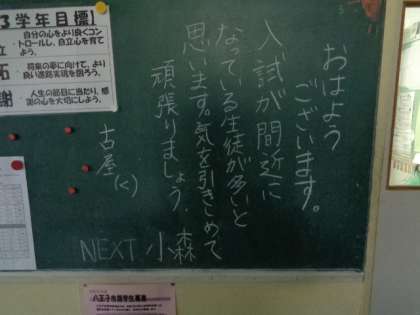 3学年目標
立 自分の心をより良くコン
トロールし、自立心を育て
よう。
拓 将来の夢に向けて、より
良い進路実現を図ろう。
謝 人生の節目に当たり、感
謝の心を大切にしよう。
おはよう
ございます。
入試が間近に
なっている生徒が多いと
思います。気を引きしめて
頑張りましょう。
古屋(く)
NEXT 小森